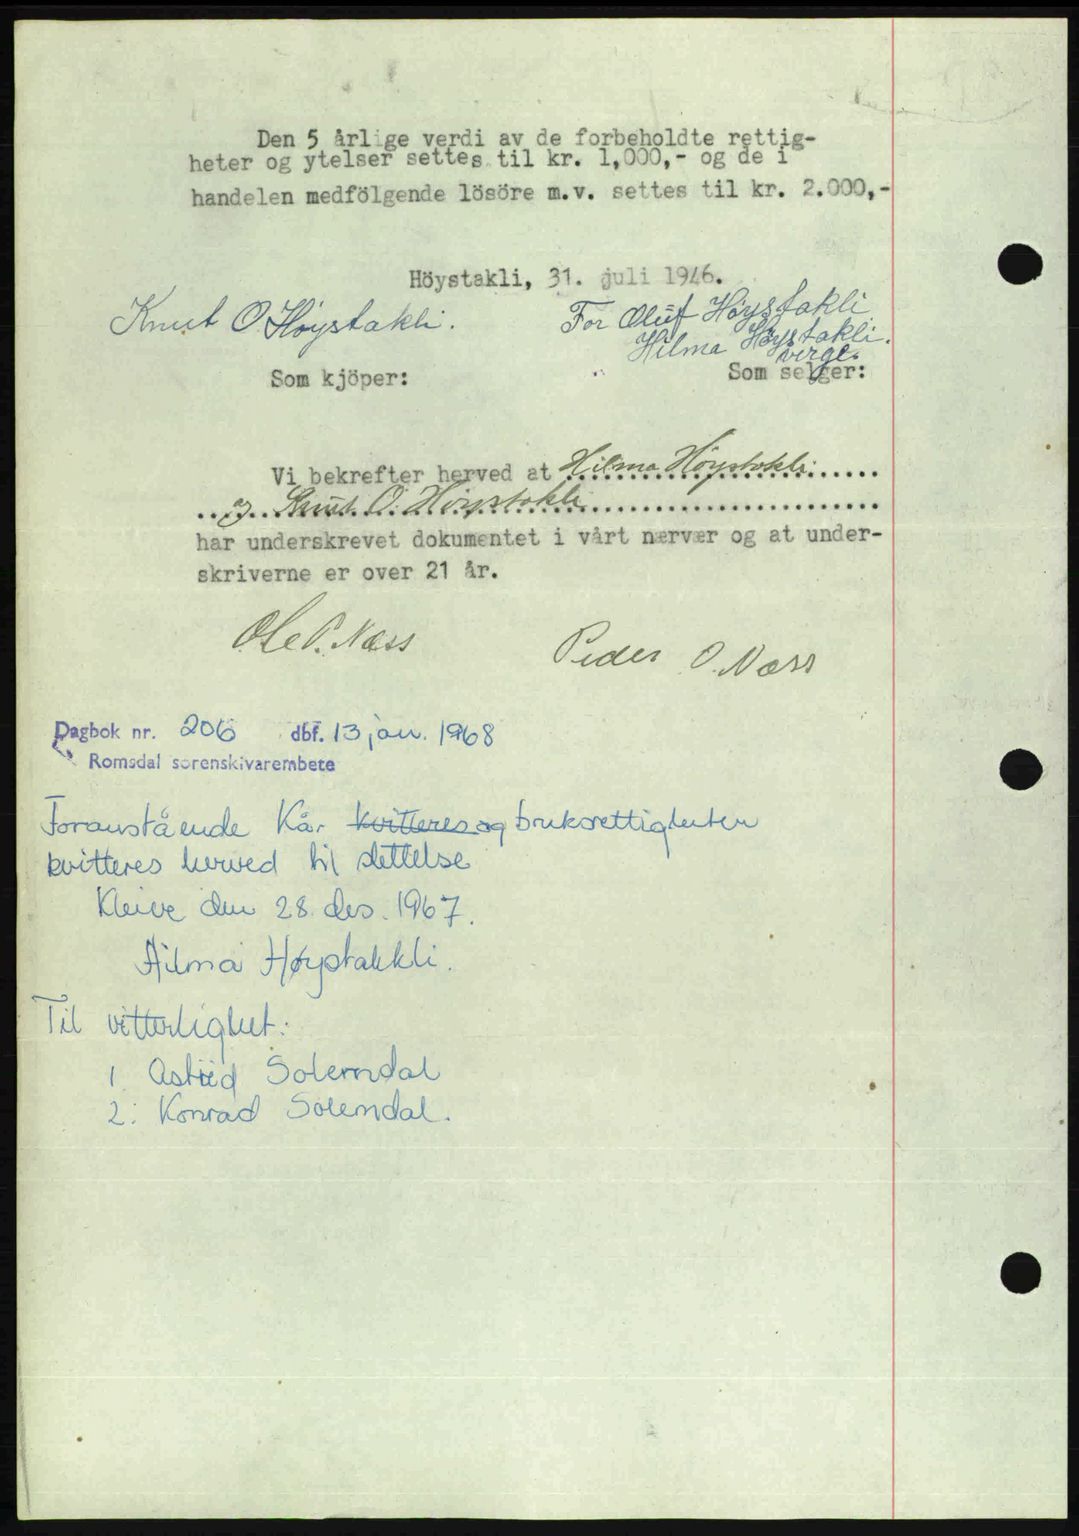 Den 5 årlige verdi av de forbeholdte rettig-
heter og ytelser settes til kr. 1,000,- og de i
handelen medfölgende lösöre m.v. settes til kr. 2.000,-
Höystakli, 31. juli 1946.
Knut O. Høystakli.
For Oluf Høystakli
Hilma Høystakli.
verge.
Som kjöper:
Som selger:
Vi bekrefter herved at Hilma Höystakli
og Knut O. Höystakli
har underskrevet dokumentet i vårt nærvær og at under-
skriverne er over 21 år.
Ole P. Næss
Peder O. Næss
Dagbok nr. 206 dbf. 13 jan. 1968
Romsdal sorenskivarembete
Foranstående Kår kvitteres og bruksrettigheten
kvitteres herved til slettelse
Kleive den 28. des. 1967.
Hilma Høystakkli.
Til vitterlighet:
1. Astrid Solemdal
2. Konrad Solemdal.